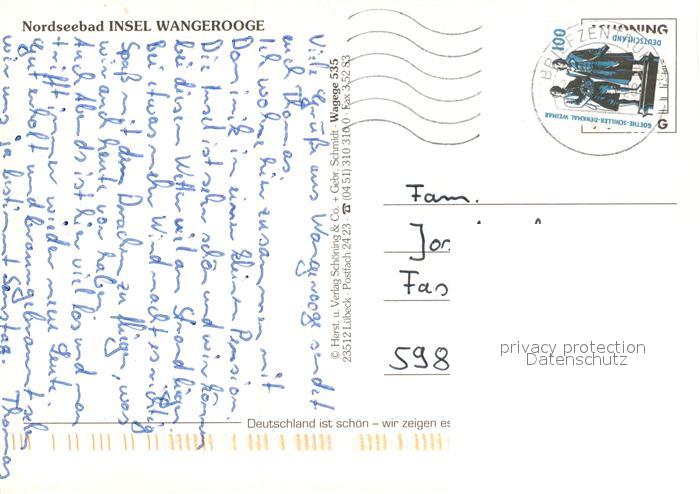 Nordseebad INSEL WANGEROOGE
Viele Grüße aus Wangerooge sendet
euch Thomas.
Ich wohne hier zusammen mit
Dominik in einer kleinen Pension.
Die Insel ist sehr schön und wir können
bei diesem Wetter viel am Strand liegen.
Bei etwas mehr Wind macht es richtig
Spaß mit dem Drachen zu fliegen, was
wir auch heute vor haben.
Auch Abends ist hier viel los und man
trifft immer wieder neue Leute.
Gut erholt und braungebrannt sehen
wir uns ja bestimmt Samstag. Thomas
© Herst. u. Verlag Schöning & Co. + Gebr. Schmidt · Wagege 535
23512 Lübeck · Postfach 24 23 ☎ (04 51) 310 310 · Fax 3 52 83
SCHÖNING
100
DEUTSCHLAND
GOETHE-SCHILLER-DENKMAL WEIMAR
BRIEFZEN
G
Fam.
Jor
Fas
598
privacy protection
Datenschutz
Deutschland ist schön – wir zeigen es